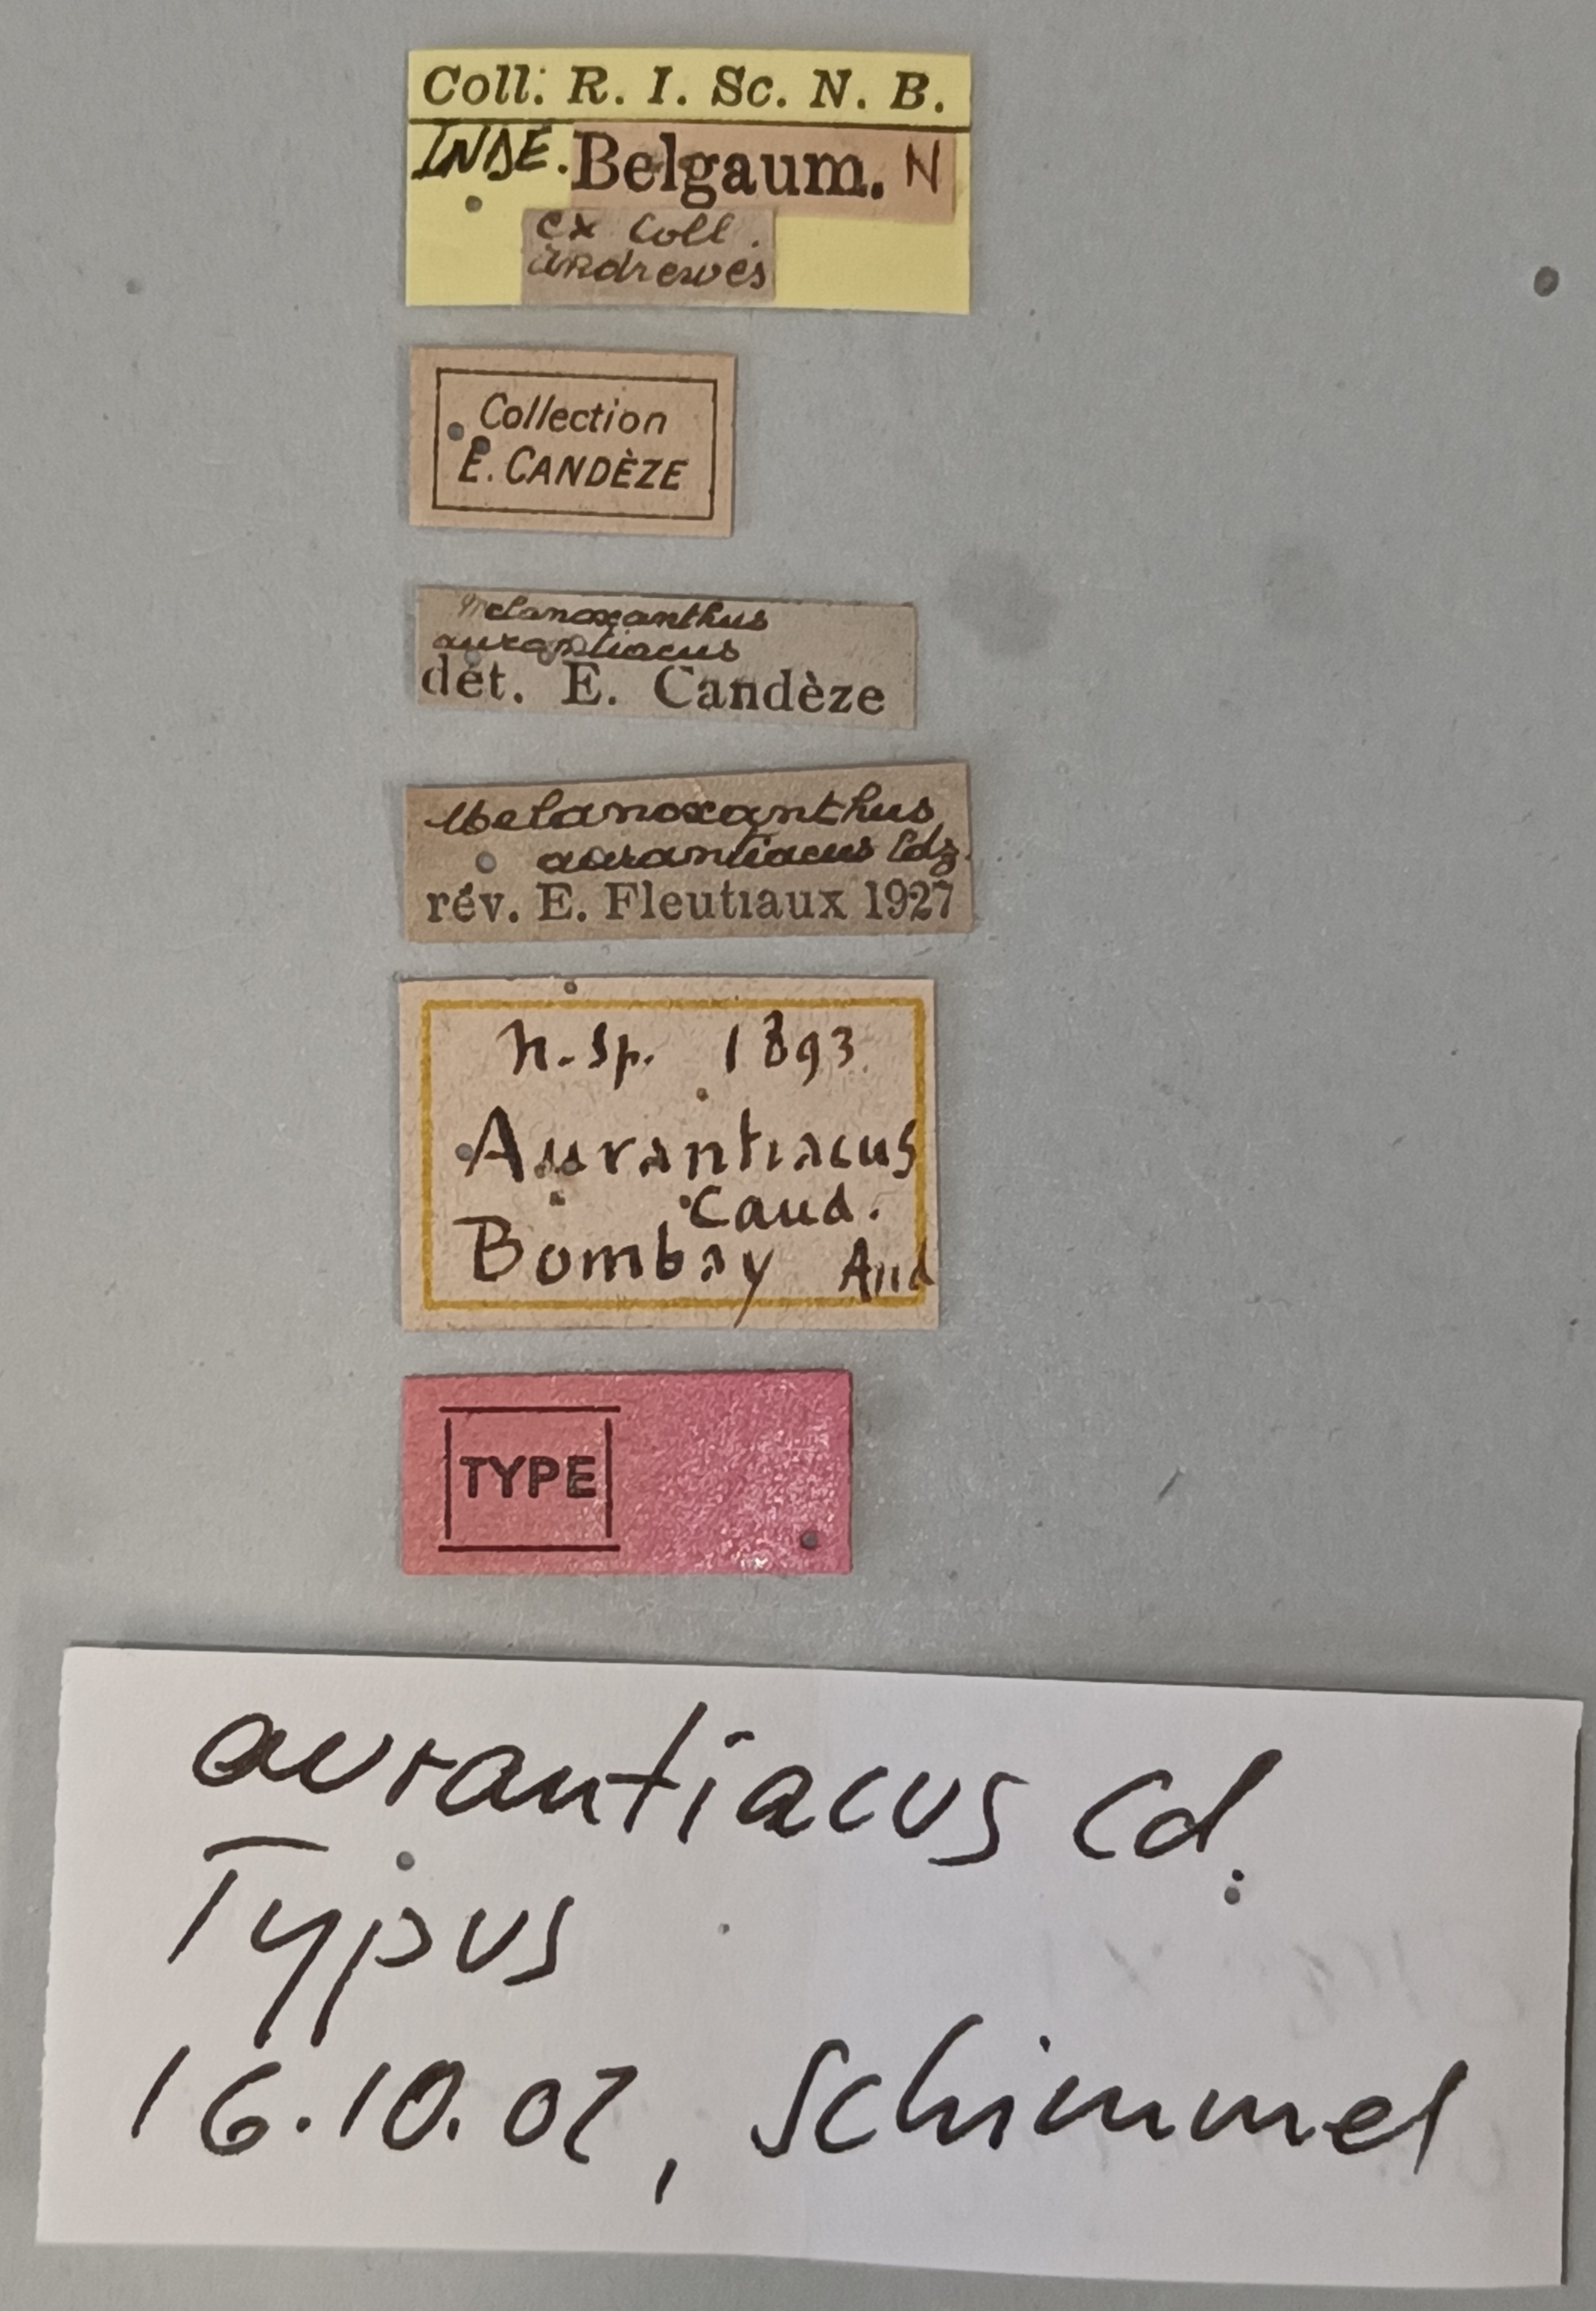 Coll. R. I. Sc. N. B.
INDE. Belgaum. N
ex Coll.
andrewes
Collection
E. CANDÈZE
Melanoxanthus
aurantiacus
dét. E. Candèze
Melanoxanthus
aurantiacus Cdz.
rév. E. Fleutiaux 1927
n. sp. 1893
Aurantiacus
Cand.
Bombay And
TYPE
aurantiacus Cd.
Typus
16.10.02, Schimmel